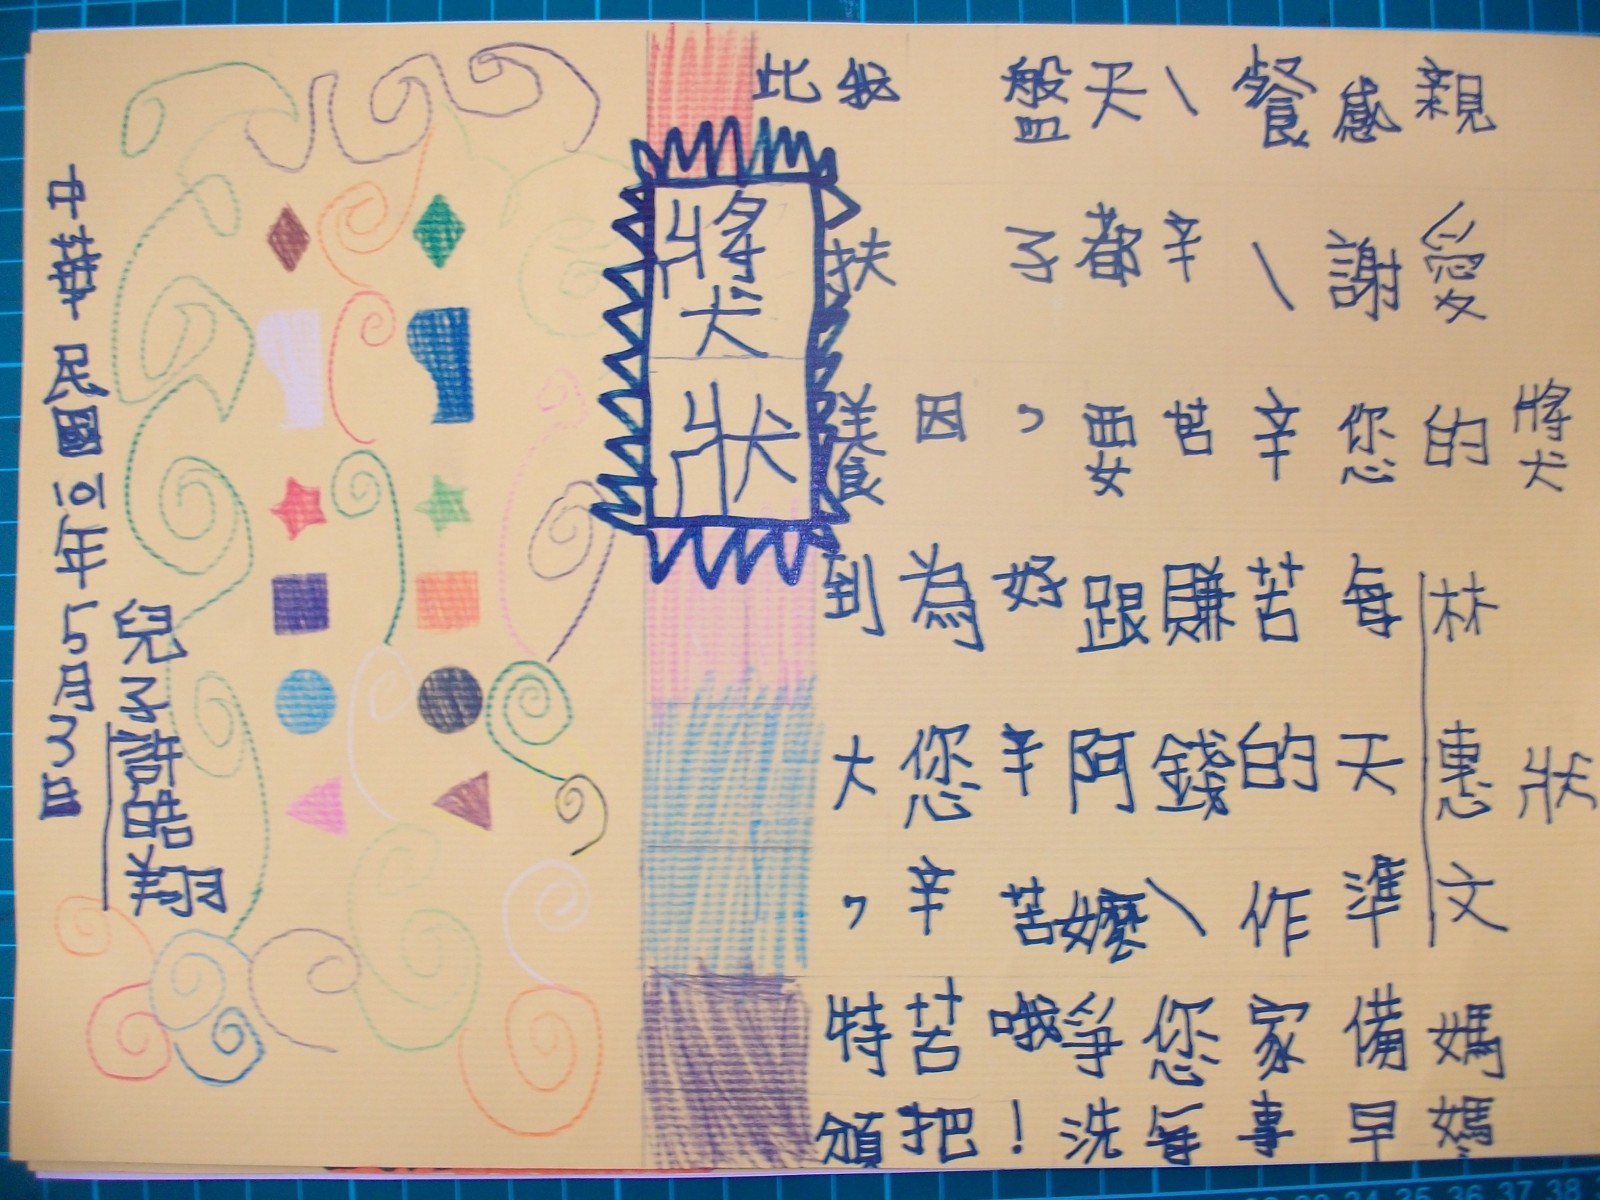 獎狀
親愛的林惠文媽媽
感謝您每天準備早
餐、辛苦的作家事
、辛苦賺錢、您每
天都要跟阿嬤爭洗
盤子，好辛苦哦！
因為您辛苦把
我扶養到大，特頒
此
獎狀
兒子許皓翔
中華民國101年5月3日